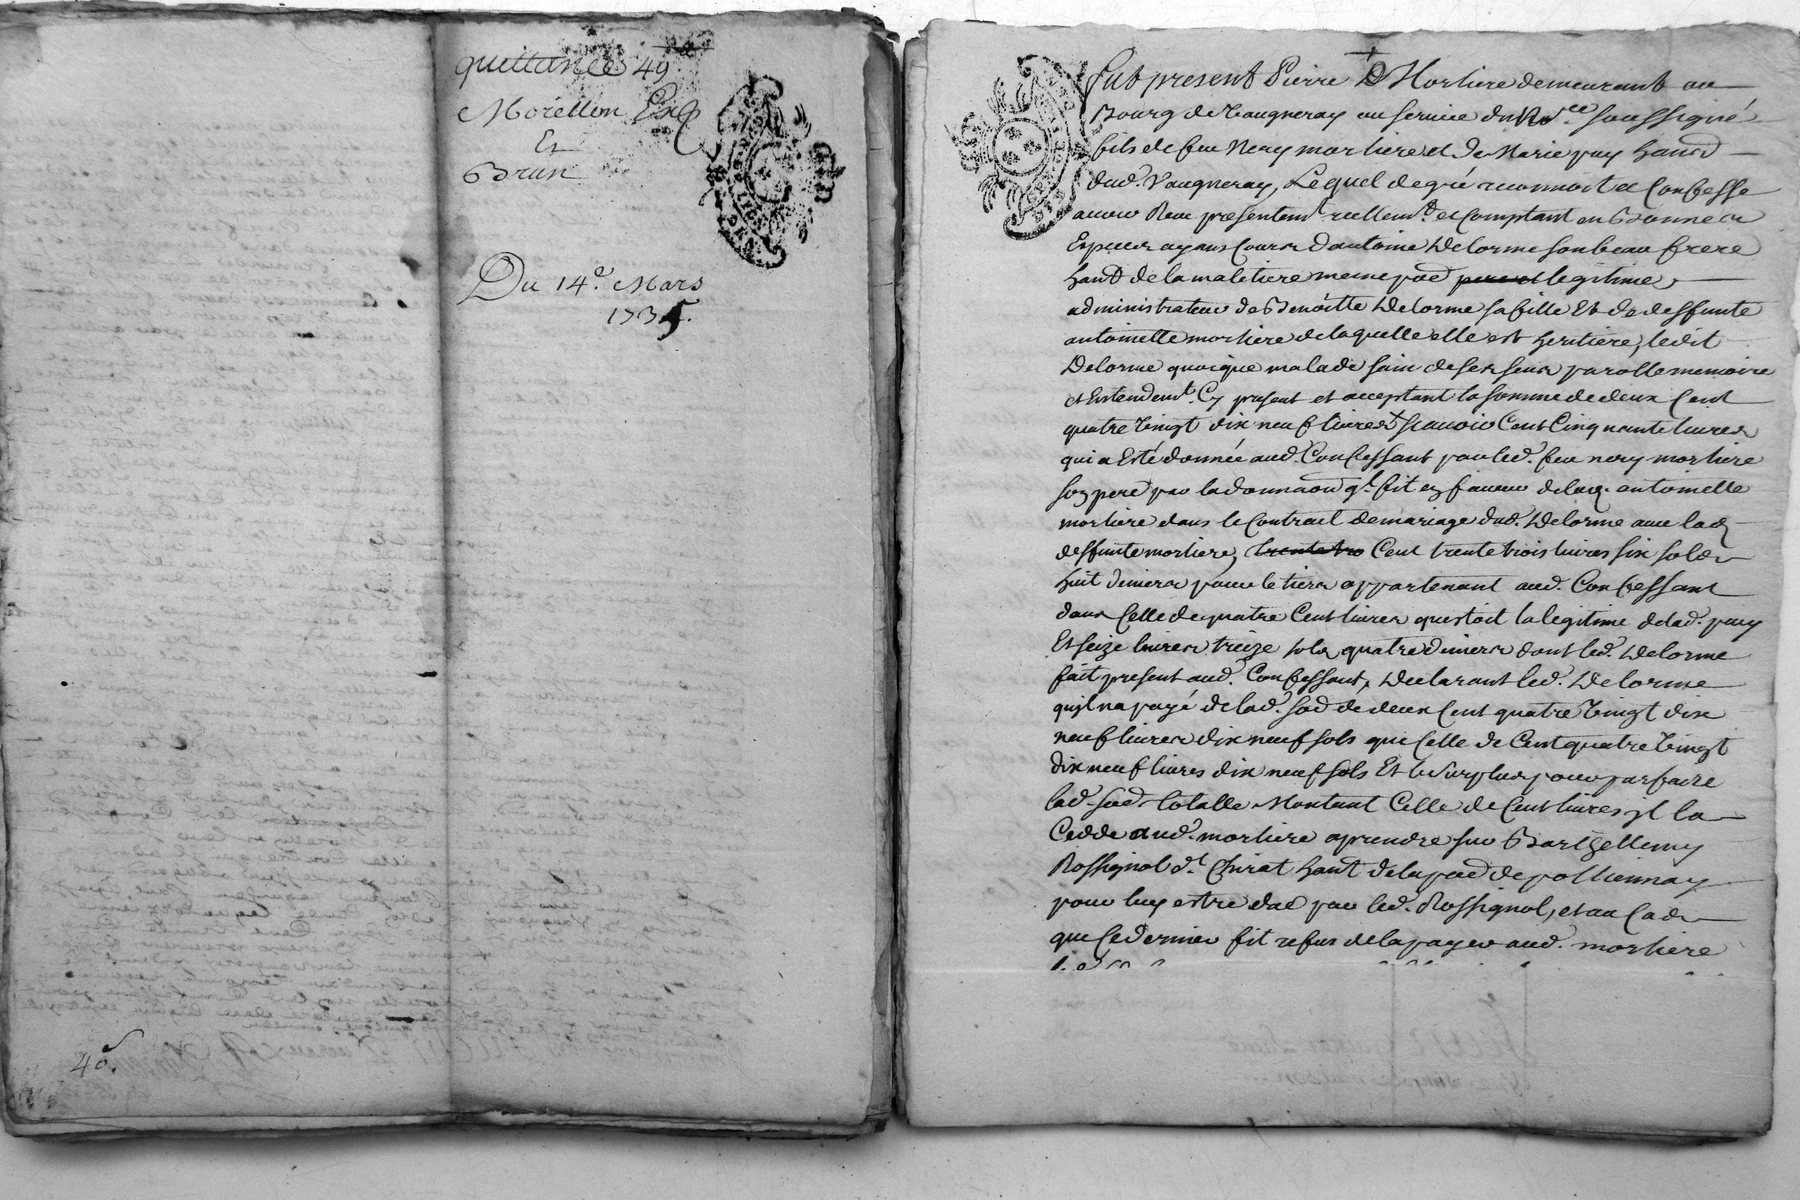 quittance 49
Morellon
Et
Brun
Du 14e. Mars
1735.
40s.
fut present Pierre Morliere demeurant au
Bourg de Vaugneray au service du No.re soussigné
fils de feu Nery morliere et de Marie puy hand
dud. Vaugneray, Lequel de gré reconnoit et Confesse
avoir Receu presentemt reellemt et Comptant en Bonnes
Especes ayans Cours d'antoine Delorme son beau frere
hant de la maletiere meme psse pere et legitime
administrateur de Benoitte Delorme sa fille Et de deffunte
antoinette morliere de laquelle elle est heritiere, ledit
Delorme quoique malade sain de ses sens parolle memoire
et Entendemt. Cy present et acceptant la somme de deux Cent
quatre vingt dix neuf livres scavoir Cent Cinquante livres
qui a Esté donnée aud. Confessant par led. feu nery morliere
son pere par la donnaon ql. fit en faveur de lad. antoinette
morliere dans le Contract de mariage dud. Delorme avec lad.
deffunte morliere, trente tro Cent trente trois livres six sols
huit deniers pour le tiers appartenant aud. Confessant
dans Celle de quatre Cent livres questoit la legitime de lad. puy
Et seize livres treize sols quatre deniers dont led. Delorme
fait present aud. Confessant, Declarant led. Delorme
qu'il n'a payé de lad. somme de deux Cent quatre vingt dix
neuf livres dix neuf sols que Celle de Cent quatre vingt
dix neuf livres dix neuf sols Et le surplus pour parfaire
lad. somme totalle Montant Celle de Cent livres il la
Cedde aud. morliere a prendre sur Barthellemy
Rossignol dt. Chirat hant de la psse de pollionnay
pour luy estre due par led. Rossignol, et au Cas
que Ce dernier fit refus de la payer aud. morliere